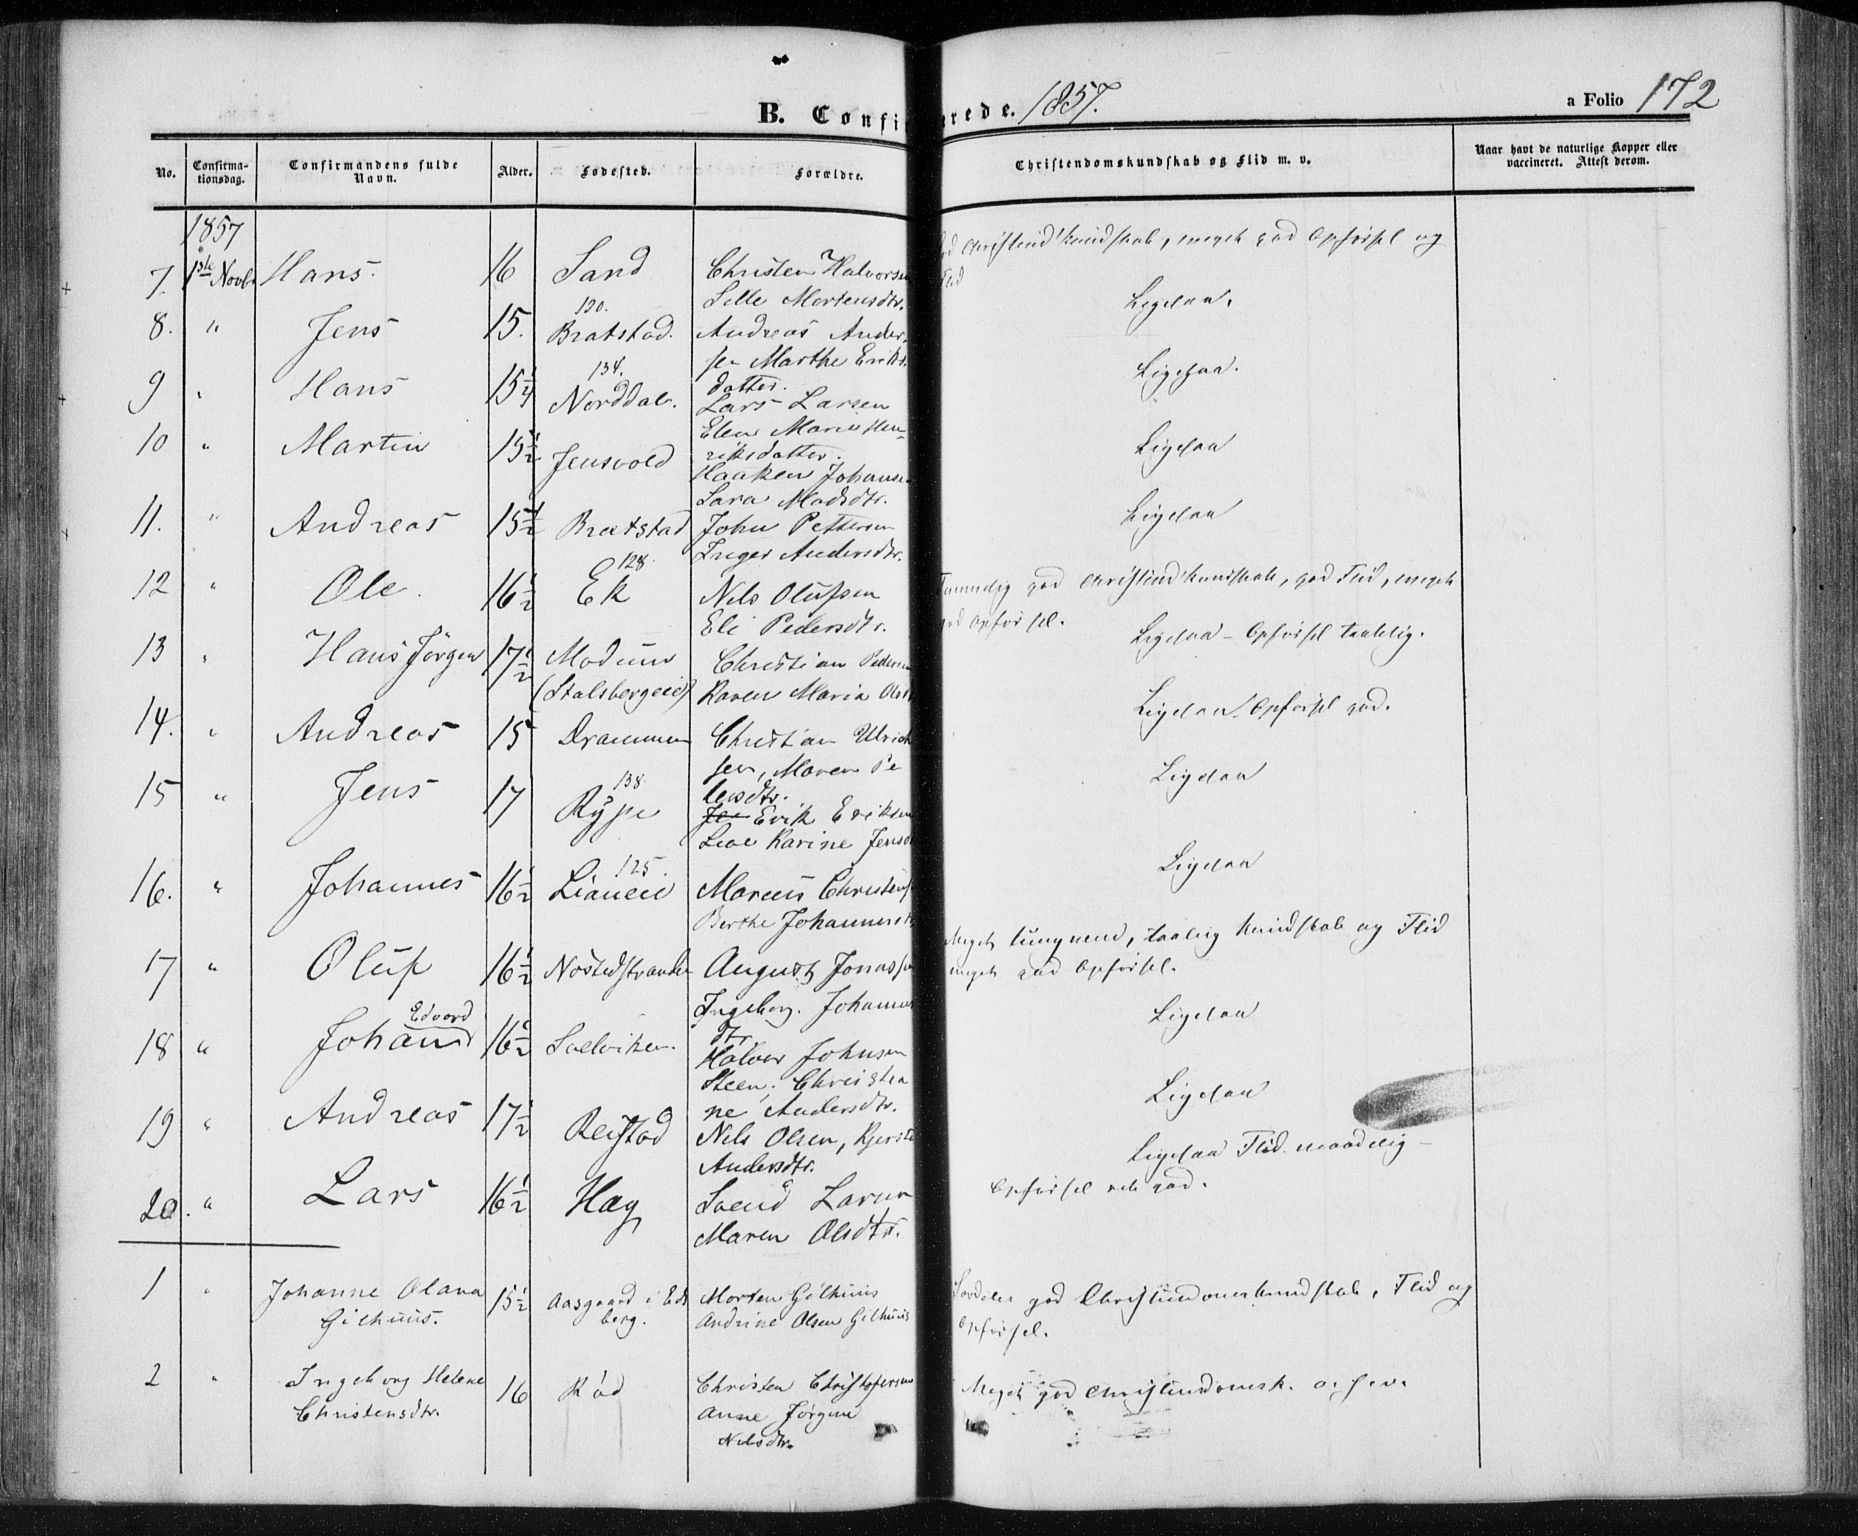 B. Confirmerede. 1857.
a Folio 172
No.
Confirma-
tionsdag.
Confirmandens fulde
Navn.
Alder.
Fødested.
Forældre.
Christendomskundskab og Flid m. v.
Naar havt de naturlige Kopper eller
vaccineret. Attest derom.
1857
7. 1ste Novbr Hans. 16 Sand Christen Halvorsen
Mortensdtr.
god Christend kundskab, meget god Opførsel og
Flid
8. " Jens 15. 130. Bratstad. Andreas Ander-
sen Marthe Eriks-
datter.
Ligesaa.
9 " Hans 15¼ 134. Norddal. Lars Larsen
Elen Marie Hen-
riksdatter.
Ligesaa.
10 " Martin 15½ Jensvold Haaken Johansen
Sara Madsdtr.
Ligesaa
11. " Andreas 15½ Bratstad John Pettersen
Inger Andersdtr.
Ligesaa
12 " Ole. 16½ 128. Ek Nils Olufsen
Eli Pedersdtr.
Temmelig god Christend kundskab, god Flid, meget
god Opførsel.
13 " Hans Jørgen 17½ Modum Christian Pedersen
(Stalsbergeie) Karen Maria
Ligesaa - Opførsel taalelig.
14. " Andreas 15 Drammen Christian Ulrich
sen, Maren Pe
dersdtr.
Ligesaa Opførsel god.
15 " Jens 17 138. Rype Erik Eriksen
Karine Jensdtr
Ligesaa
16. " Johannes 16½ 125. Lianeie Marcus Christens
Berthe Johannes
Ligesaa
17 " Oluf 16½ Nøstedstranden August Jonassen
Ingeborg. Johannes
dtr.
Meget tungnem, taalig kundskab og Flid
meget god Opførsel.
18 " Johan Edvard 16½ Svelviken. Halvor Johnsen
Steen. Christia
ne Andersdtr.
Ligesaa
19 " Andreas 17½ Reistad Nils Olsen,
Andersdtr.
Ligesaa
20. " Lars 16½ Hag Svend Larsen
Maren Olsdtr.
Ligesaa Flid. maadelig -
Opførsel god.
1 " Johanne Olava
Gilhuus. 15½ Aasgaard i Eds
berg. Morten Gilhuus
Andrine Olsen Gilhuus
Særdeles god Christendomskundskab, Flid og
Opførsel.
2 " Ingeborg Helene
Christensdtr. 16 Rød Christen Christophersen
Anne Jørgine
Nilsdtr.
Meget god Christendomsk. o. s. v.